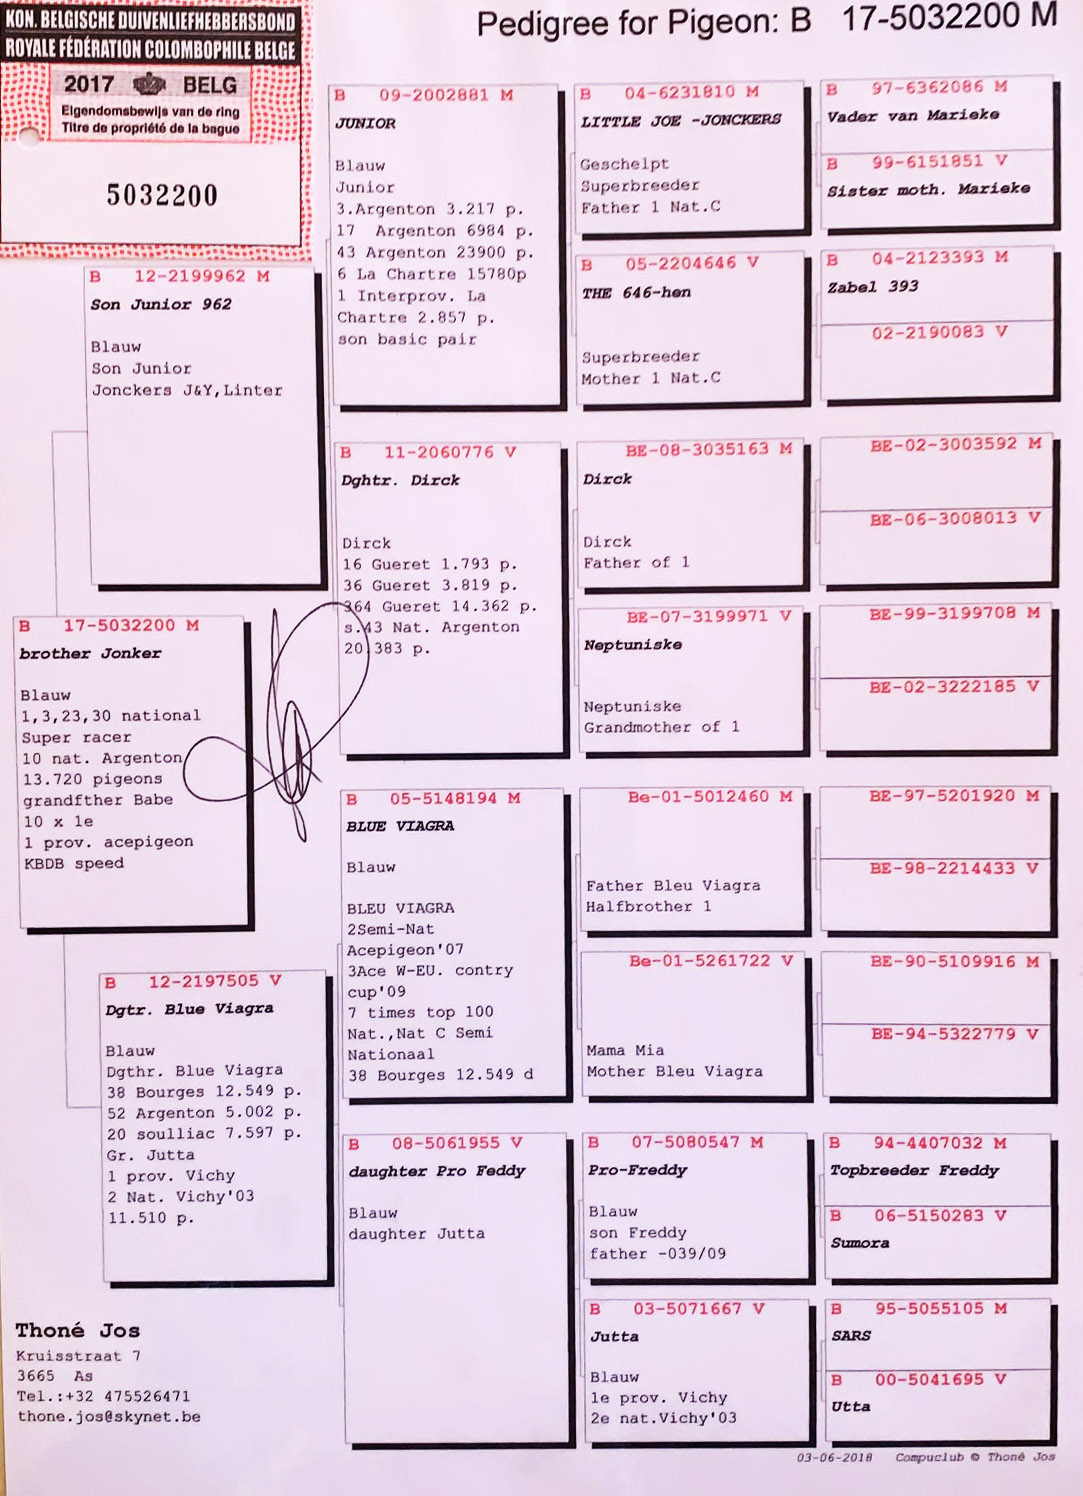 KON. BELGISCHE DUIVENLIEFHEBBERSBOND
ROYALE FÉDÉRATION COLOMBOPHILE BELGE
2017 BELG
Eigendomsbewijs van de ring
Titre de propriété de la bague
5032200
Pedigree for Pigeon: B 17-5032200 M
B 17-5032200 M
brother Jonker
Blauw
1,3,23,30 national
Super racer
10 nat. Argenton
13.720 pigeons
grandfther Babe
10 x 1e
1 prov. acepigeon
KBDB speed
B 12-2199962 M
Son Junior 962
Blauw
Son Junior
Jonckers J&Y,Linter
B 12-2197505 V
Dgtr. Blue Viagra
Blauw
Dgthr. Blue Viagra
38 Bourges 12.549 p.
52 Argenton 5.002 p.
20 soulliac 7.597 p.
Gr. Jutta
1 prov. Vichy
2 Nat. Vichy'03
11.510 p.
B 09-2002881 M
JUNIOR
Blauw
Junior
3.Argenton 3.217 p.
17 Argenton 6984 p.
43 Argenton 23900 p.
6 La Chartre 15780p
1 Interprov. La
Chartre 2.857 p.
son basic pair
B 11-2060776 V
Dghtr. Dirck
Dirck
16 Gueret 1.793 p.
36 Gueret 3.819 p.
364 Gueret 14.362 p.
s.43 Nat. Argenton
20.383 p.
B 05-5148194 M
BLUE VIAGRA
Blauw
BLEU VIAGRA
2Semi-Nat
Acepigeon'07
3Ace W-EU. contry
cup'09
7 times top 100
Nat.,Nat C Semi
Nationaal
38 Bourges 12.549 d
B 08-5061955 V
daughter Pro Feddy
Blauw
daughter Jutta
B 04-6231810 M
LITTLE JOE -JONCKERS
Geschelpt
Superbreeder
Father 1 Nat.C
B 05-2204646 V
THE 646-hen
Superbreeder
Mother 1 Nat.C
BE-08-3035163 M
Dirck
Dirck
Father of 1
BE-07-3199971 V
Neptuniske
Neptuniske
Grandmother of 1
Be-01-5012460 M
Father Bleu Viagra
Halfbrother 1
Be-01-5261722 V
Mama Mia
Mother Bleu Viagra
B 07-5080547 M
Pro-Freddy
Blauw
son Freddy
father -039/09
B 03-5071667 V
Jutta
Blauw
1e prov. Vichy
2e nat.Vichy'03
B 97-6362086 M
Vader van Marieke
B 99-6151851 V
Sister moth. Marieke
B 04-2123393 M
Zabel 393
02-2190083 V
BE-02-3003592 M
BE-06-3008013 V
BE-99-3199708 M
BE-02-3222185 V
BE-97-5201920 M
BE-98-2214433 V
BE-90-5109916 M
BE-94-5322779 V
B 94-4407032 M
Topbreeder Freddy
B 06-5150283 V
Sumora
B 95-5055105 M
SARS
B 00-5041695 V
Utta
Thoné Jos
Kruisstraat 7
3665 As
Tel.:+32 475526471
thone.jos@skynet.be
03-06-2018 Compuclub © Thoné Jos